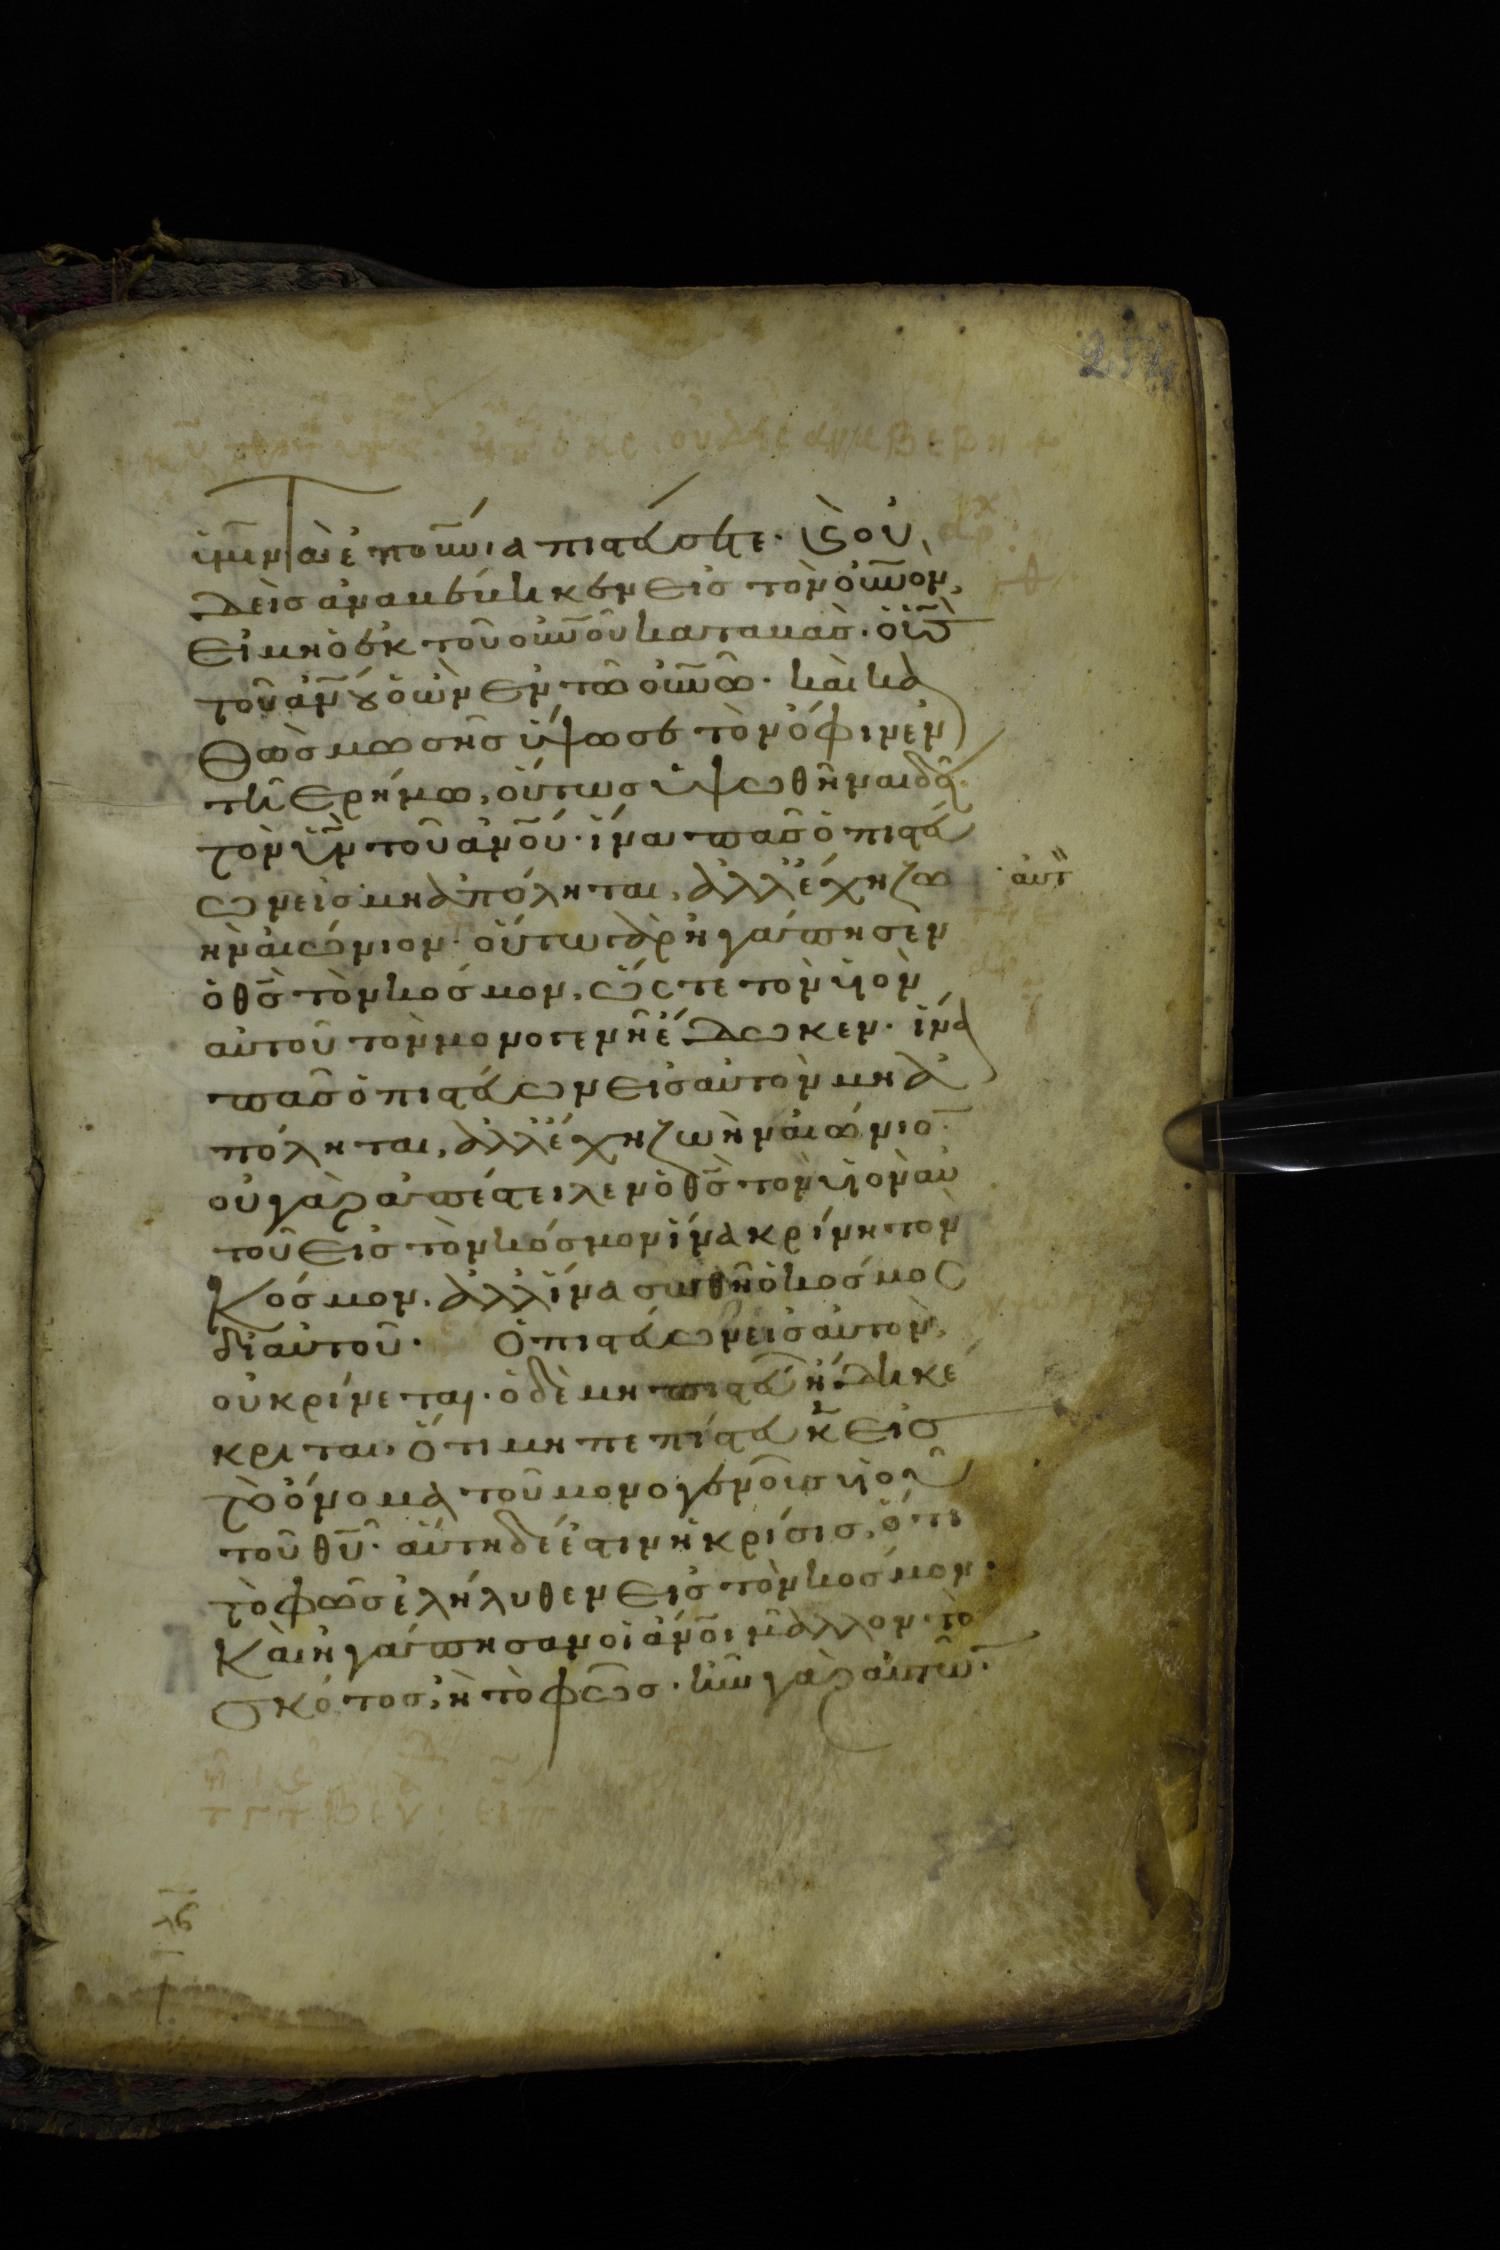 254
ὑμῖν τὰ ἐπουνια πιστεύσητε. καὶ οὐ
δεὶς ἀναβέβηκεν εἰς τὸν οὐνον,
εἰ μὴ ὁ ἐκ τοῦ οὐνοῦ καταβὰς. ὁ υἱὸς
τοῦ ἀνου ὁ ὢν ἐν τῶ οὐνῶ. καὶ κα
θὼς μωσῆς ὕψωσε τὸν ὄφιν ἐν
τῆ ἐρήμω, οὕτως ὑψωθῆναι δεῖ
τὸν υἱὸν τοῦ ἀνου. ἵνα πᾶς ὁ πιστεύ
ων εἰς μὴ ἀπόληται, ἀλλ ἔχη ζω αὐτ
ὴν αἰώνιον. οὕτω γὰρ ἠγάπησεν
ὁ θς τὸν κόσμον, ὥστε τὸν υἱὸν
αὐτοῦ τὸν μονογενῆ ἔδωκεν. ἵνα
πᾶς ὁ πιστεύων εἰς αὐτὸν μὴ ἀ
πόληται, ἀλλ ἔχη ζωὴν αἰώνιο
οὐ γὰρ ἀπέστειλεν ὁ θς τὸν υἱὸν αὐ
τοῦ εἰς τὸν κόσμον ἵνα κρίνη τὸν
κόσμον. ἀλλ ἵνα σωθῆ ὁ κόσμος
δι αὐτοῦ. Ὁ πιστεύων εἰς αὐτὸν,
οὐ κρίνεται. ὁ δὲ μὴ πιστεύων ἤδη κέ
κριται, ὅτι μὴ πεπίστευκεν εἰς
τὸ ὄνομα τοῦ μονογενοῦς υἱοῦ
τοῦ θυ. αὕτη δέ ἐστιν ἡ κρίσις, ὅτι
τὸ φῶς ἐλήλυθεν εἰς τὸν κόσμον.
καὶ ἠγάπησαν οἱ ἄνοι μᾶλλον τὸ
σκότος, ἢ τὸ φῶς. ἦν γὰρ αὐτῶν